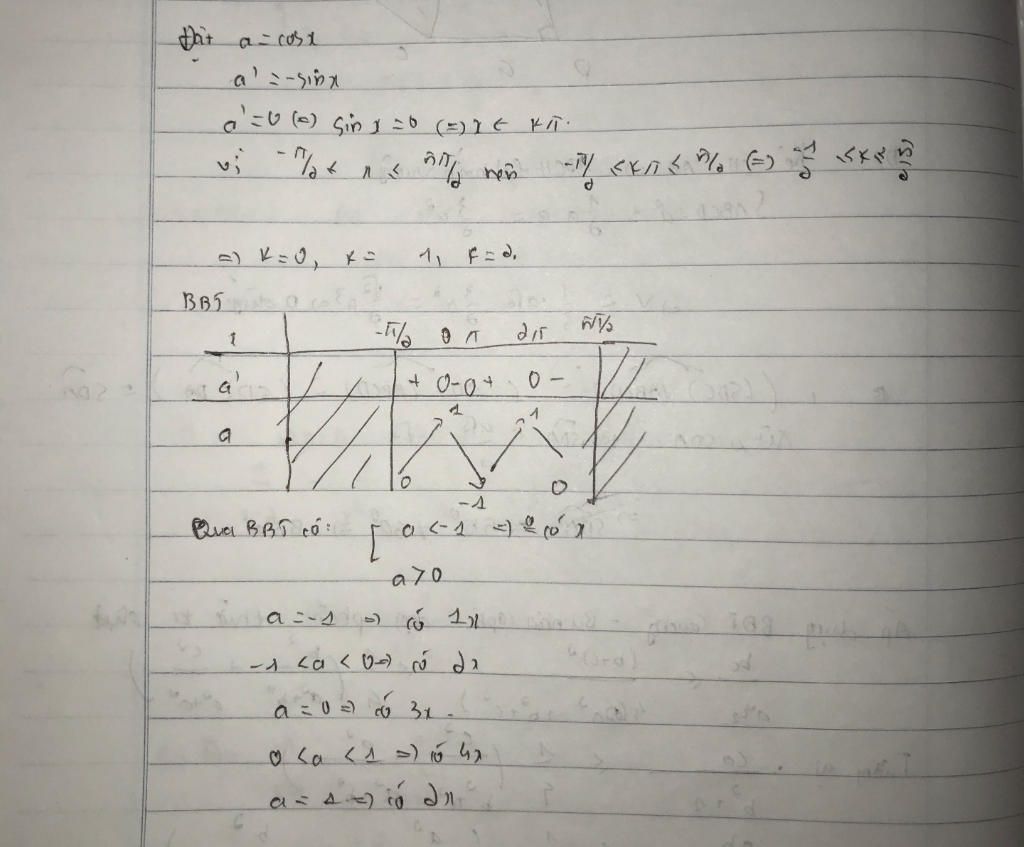 Đặt a = cosx
a' = -sinx
a' = 0 (=) sin x = 0 (=) x = kπ.
vì -π/2 ≤ x ≤ 5π/2 nên -π/2 ≤ kπ ≤ 5π/2 (=) -1/2 ≤ k ≤ 5/2
=) k = 0, k = 1, k = 2.
BBT
x -π/2 0 π 2π 5π/2
a' + 0 - 0 + 0 -
a 0 1 -1 1 0
Qua BBT có: [ a < -1 =) có x
a > 0
a = -1 =) có 1x
-1 < a < 0 =) có 2x
a = 0 =) có 3x.
0 < a < 1 =) có 4x
a = 1 =) có 2x